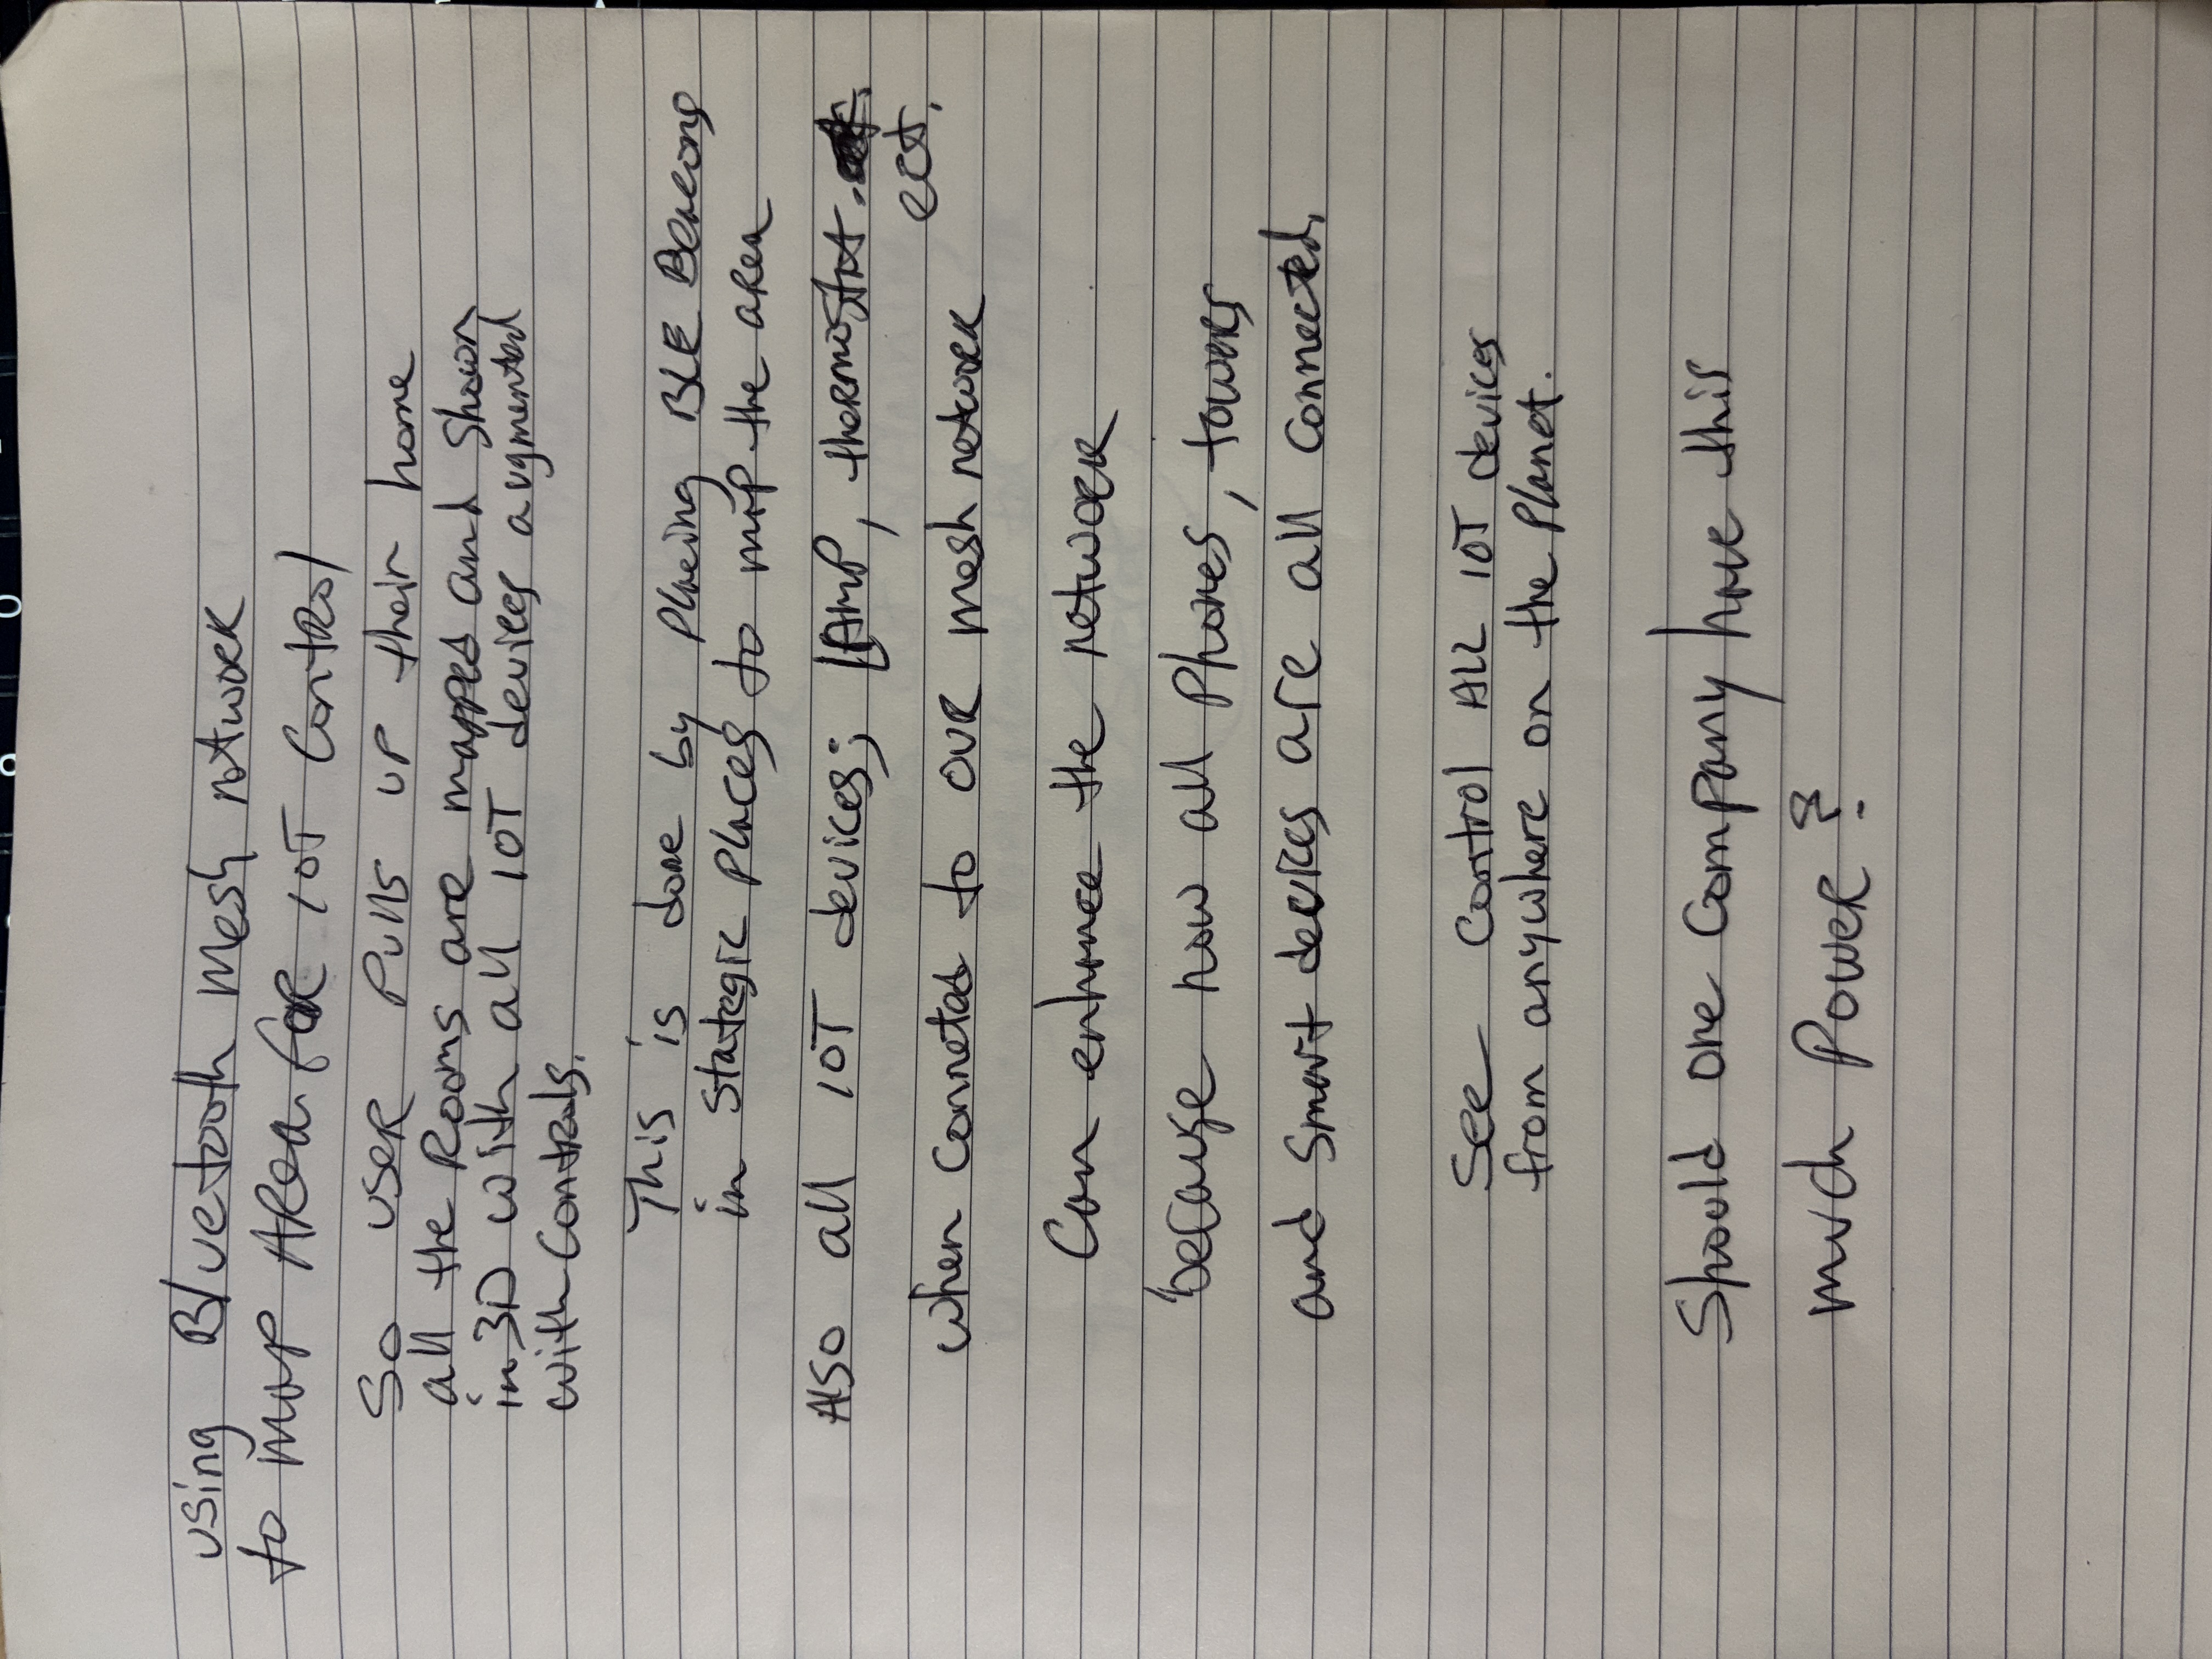 using Bluetooth Mesh network
to map Area for IOT Control
So user pulls up their home
all the Rooms are mapped and shown
in 3D with all IOT devices augmented
with Controls.
This is done by placing BLE Beacons
in stategic places to map the area
Also all IOT devices; LAmp, thermostat.
ect.
when Connetad to our mesh network
Can enhance the network
because now all phones, towers
and smart devices are all Connected.
See Control ALL IOT devices
from anywhere on the Planet.
Should one Company have this
much Power?